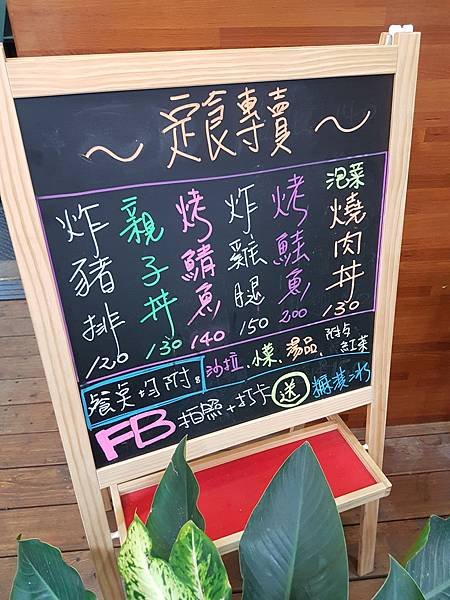 ~定食專賣~
炸豬排 120
親子丼 130
烤鯖魚 140
炸雞腿 150
烤鮭魚 200
泡菜燒肉丼 130
餐点均附:沙拉、小菜、湯品、附占紅茶
FB 拍照+打卡 送 糰漿冰